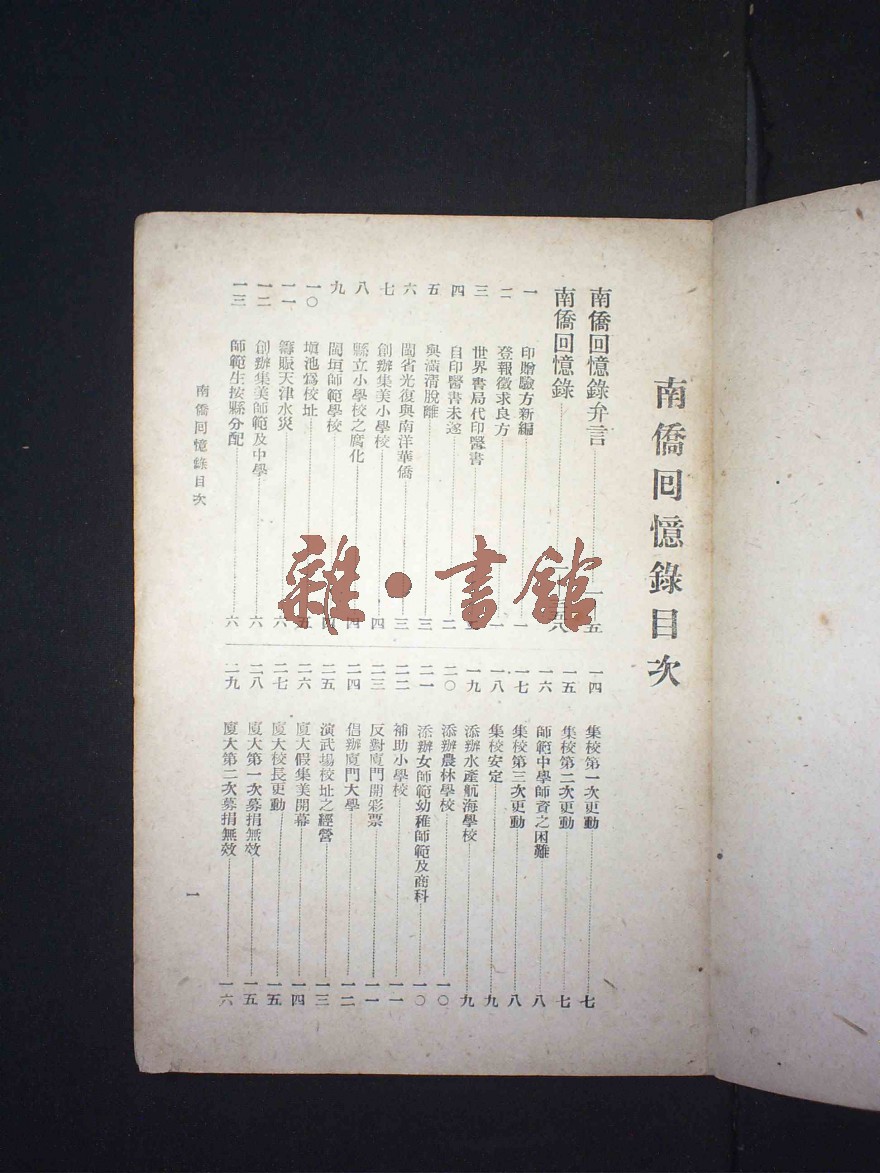 南僑回憶錄目次
南僑回憶錄弁言 一—五
南僑回憶錄
一 印贈驗方新編 一
二 登報徵求良方 一
三 世界書局代印醫書
四 自印醫書未遂 二
五 與滿清脫離 三
六 閩省光復與南洋華僑 三
七 創辦集美小學校 四
八 縣立小學校之腐化 四
九 閩垣師範學校 四
一〇 塡池爲校址 五
一一 籌賑天津水災 六
一二 創辦集美師範及中學 六
一三 師範生按縣分配 六
一四 集校第一次更動 七
一五 集校第二次更動 七
一六 師範中學師資之困難 八
一七 集校第三次更動 八
一八 集校安定 九
一九 添辦水產航海學校 九
二〇 添辦農林學校 一〇
二一 添辦女師範幼稚師範及商科 一〇
二二 補助小學校 一一
二三 反對廈門開彩票 一一
二四 倡辦廈門大學 一二
二五 演武塲校址之經營 一三
二六 廈大假集美開幕 一四
二七 廈大校長更動 一五
二八 廈大第一次募捐無效 一五
二九 廈大第二次募捐無效 一六
南僑回憶錄目次
一
雜·書館